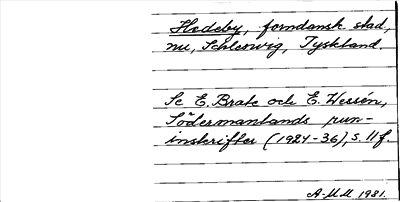 Hedeby, forndansk stad,
nu, Schleswig, Tyskland.
Se E. Brate och E. Wessén,
Södermanlands run-
inskrifter (1924-36), s. 11 f.
A.M.M 1981.